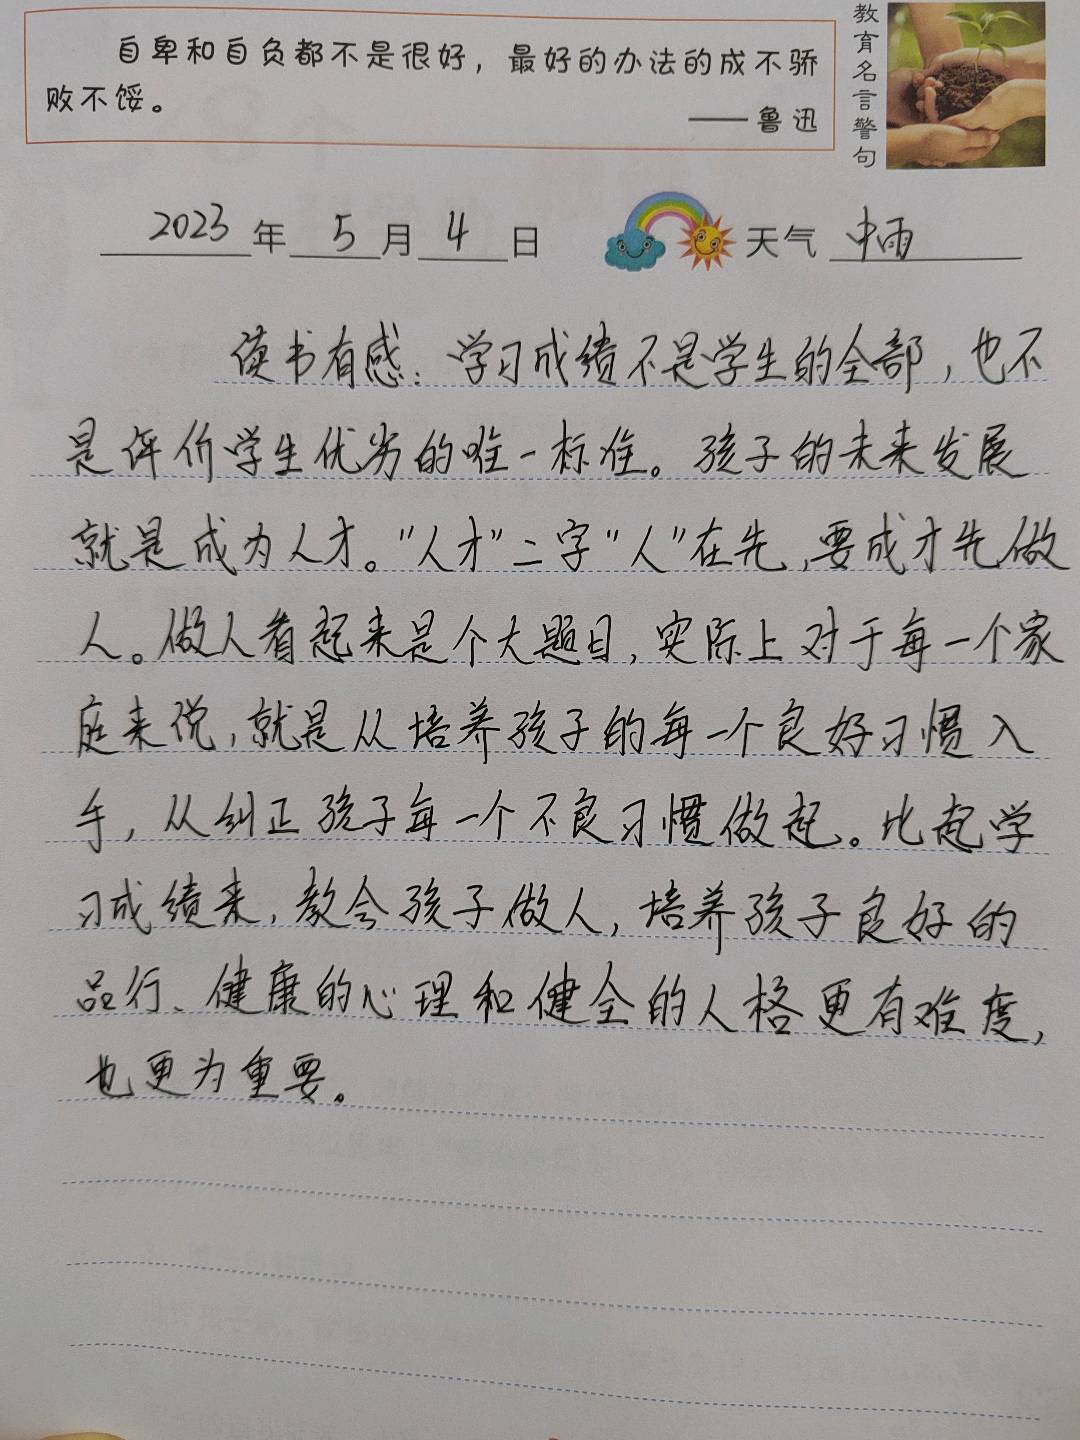 自卑和自负都不是很好，最好的办法的成不骄
败不馁。
——鲁迅
教育名言警句
2023年5月4日 天气 中雨
读书有感：学习成绩不是学生的全部，也不
是评价学生优劣的唯一标准。孩子的未来发展
就是成为人才。“人才”二字“人”在先，要成才先做
人。做人看起来是个大题目，实际上对于每一个家
庭来说，就是从培养孩子的每一个良好习惯入
手，从纠正孩子每一个不良习惯做起。比起学
习成绩来，教会孩子做人，培养孩子良好的
品行、健康的心理和健全的人格更有难度，
也更为重要。